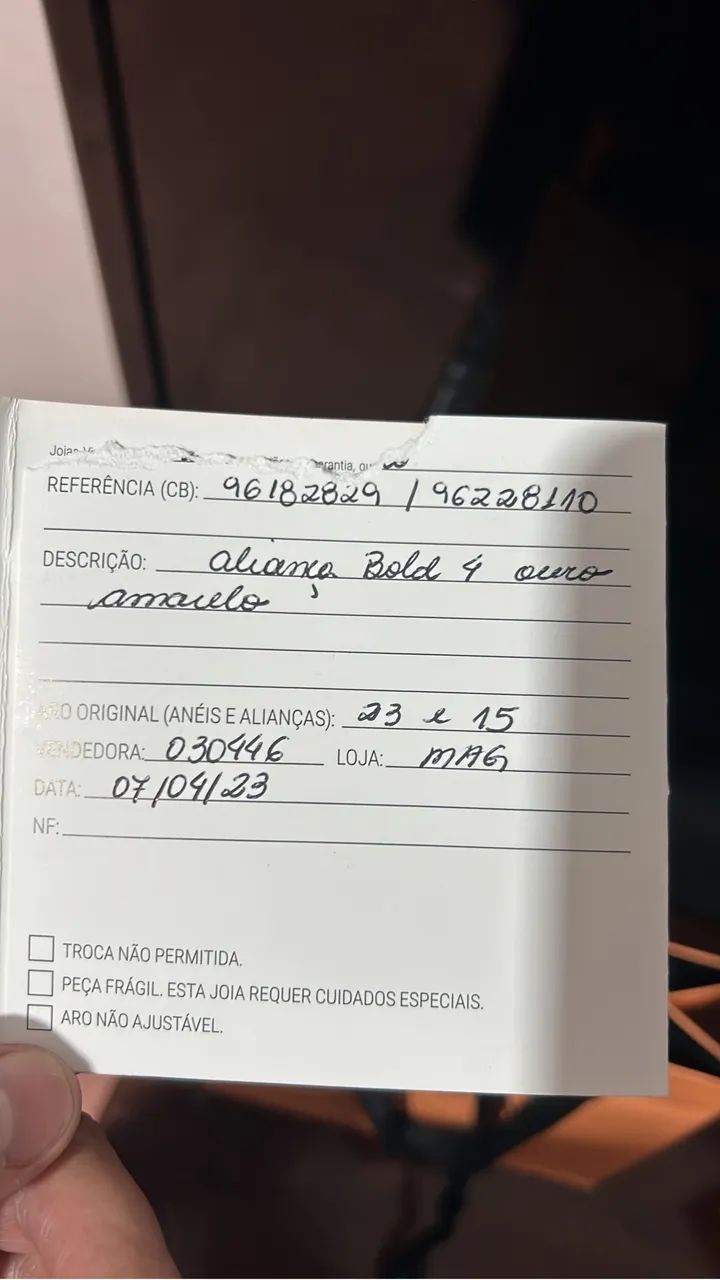 Joias
REFERÊNCIA (CB): 96182829 / 96228110
DESCRIÇÃO: aliança Bold 4 ouro
amarelo
ORIGINAL (ANÉIS E ALIANÇAS): 23 e 15
VENDEDORA: 030446 LOJA: MAG
DATA: 07/04/23
NF:
TROCA NÃO PERMITIDA.
PEÇA FRÁGIL. ESTA JOIA REQUER CUIDADOS ESPECIAIS.
ARO NÃO AJUSTÁVEL.